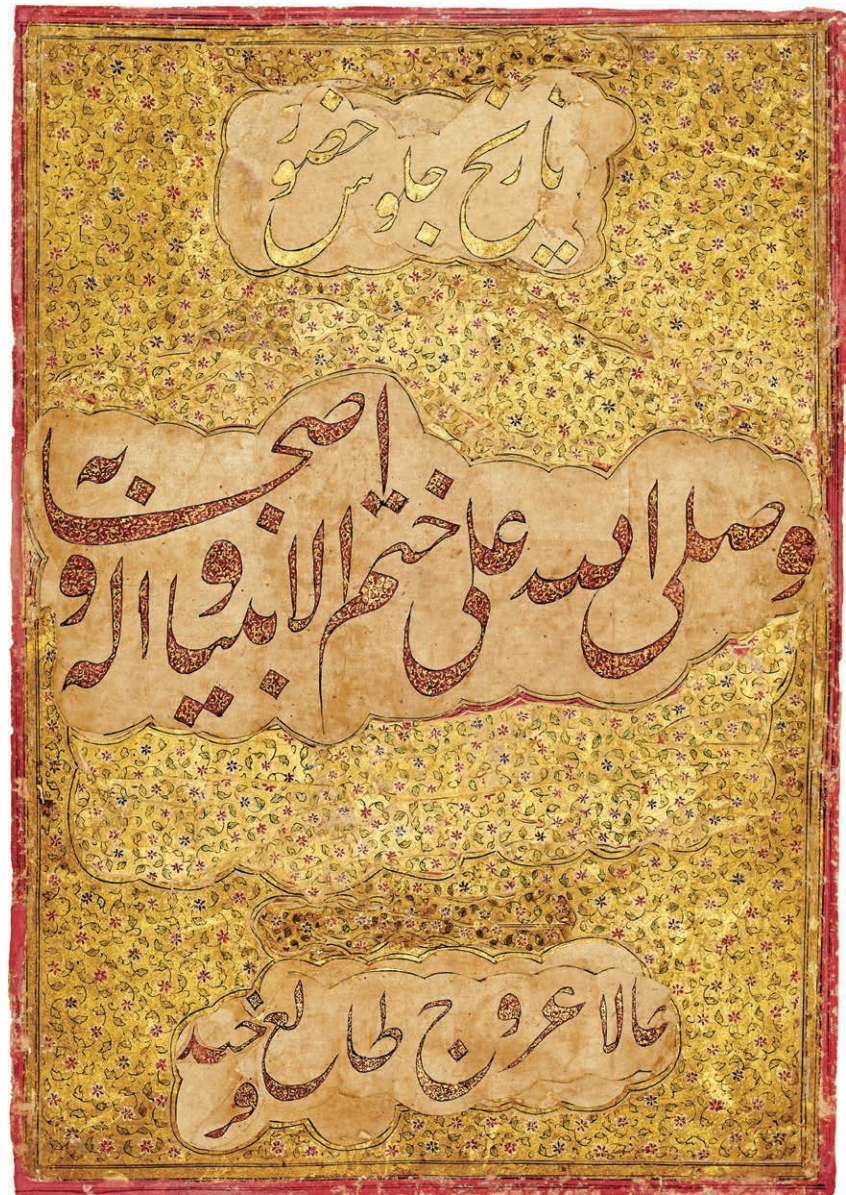 تاریخ جلوس حضور
وصلی الله علی ختم الانبیا و اله و اصحابه
عروج طالع